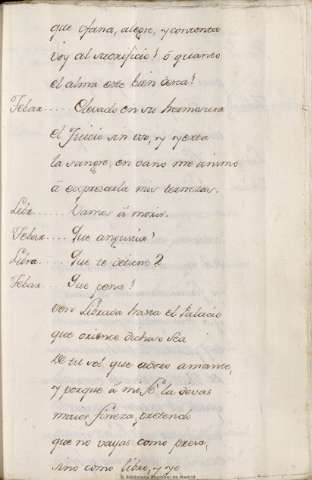 que ufana, alegre, y contenta
voy al sacrificio! ó quanto
el alma este bien desea!
Febar.... Elevado en su hermosura
el Juicio sin uso, y yerta
la sangre, en vano me animo
á expresarla mis ternezas.
Libr.... Vamos á morir.
Febar.... Que angustia!
Libra.... Que te detiene?
Febar.... Que pena!
ven Librada hasta el Palacio
que oriente dichoso sea
de tu sol que adoro amante,
y porque á mi fé la devas
maior fineza, pretendo
que no vayas como presa,
sino como libre, y yo
Biblioteca Nacional de Madrid